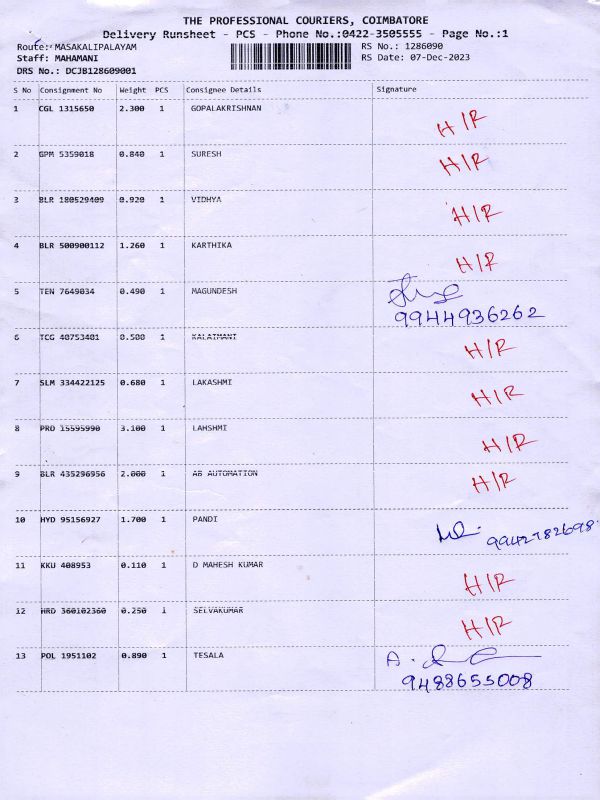 THE PROFESSIONAL COURIERS, COIMBATORE
Delivery Runsheet - PCS - Phone No.:0422-3505555 - Page No.:1
Route: MASAKALIPALAYAM RS No.: 1286090
Staff: MAHAMANI RS Date: 07-Dec-2023
DRS No.: DCJB128609001
S No Consignment No Weight PCS Consignee Details Signature
1 CGL 1315650 2.300 1 GOPALAKRISHNAN H/R
2 GPM 5359018 0.840 1 SURESH H/R
3 BLR 180529409 0.920 1 VIDHYA H/R
4 BLR 500900112 1.260 1 KARTHIKA H/R
5 TEN 7649034 0.490 1 MAGUNDESH
9944936262
6 TCG 40753401 0.500 1 KALAIMANI H/R
7 SLM 334422125 0.680 1 LAKASHMI H/R
8 PRD 15595990 3.100 1 LAHSHMI H/R
9 BLR 435296956 2.000 1 AB AUTOMATION H/R
10 HYD 95156927 1.700 1 PANDI 9942782698
11 KKU 408953 0.110 1 D MAHESH KUMAR H/R
12 HRD 360102360 0.250 1 SELVAKUMAR H/R
13 POL 1951102 0.890 1 TESALA
9488655008